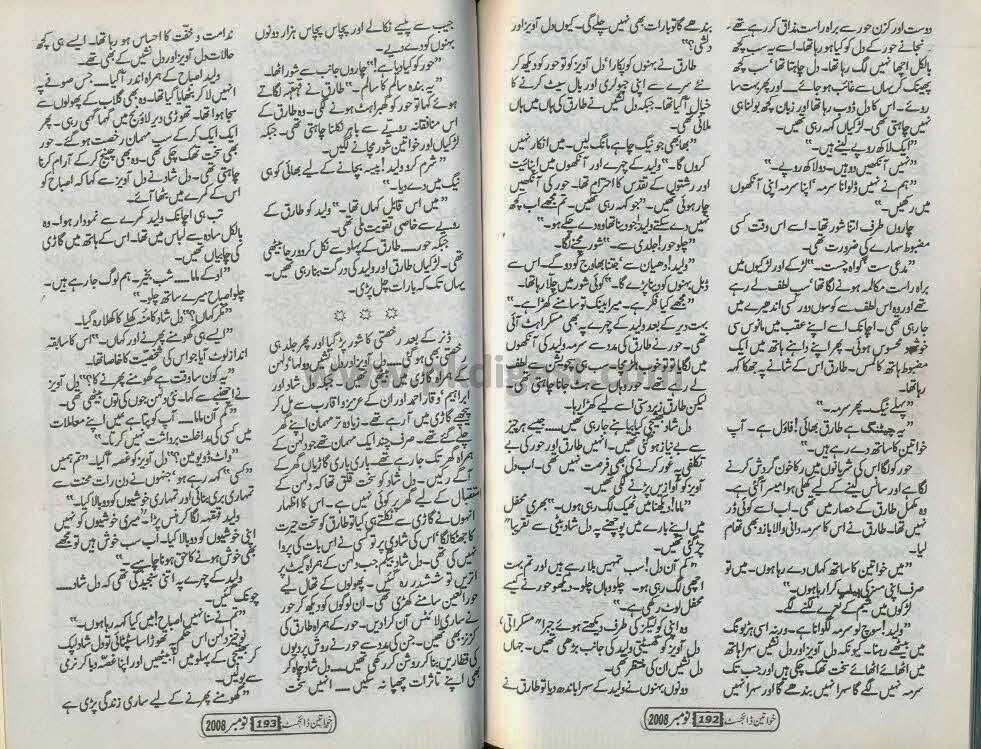 دوست اور کزن حور سے براہ راست مذاق کر رہے تھے،
نجانے حور کے دل کو کیا ہو رہا تھا۔ اسے یہ سب کچھ
بالکل اچھا نہیں لگ رہا تھا۔ دل چاہتا تھا سب کچھ
پھینک کر یہاں سے غائب ہو جائے.... اور پھر بہت سا
روئے۔ اس کا دل ڈوب رہا تھا اور زبان کچھ بولنا ہی
نہیں چاہتی تھی۔ لڑکیاں کہہ رہی تھیں۔
"ایک لاکھ روپے لینے ہیں۔"
"نہیں آنکھیں دو ہیں۔ دو لاکھ روپے۔"
"ہم نے نہیں ڈلوانا سرمہ، اپنا سرمہ اپنی آنکھوں
میں رکھیں۔"
چاروں طرف اتنا شور تھا۔ اسے اس وقت کسی
مضبوط سہارے کی ضرورت تھی۔
"مدعی سست گواہ چست۔" لڑکے اور لڑکیوں میں
براہ راست مکالمہ ہونے لگا تھا۔ سب لطف لے رہے
تھے اور وہ اس لطف سے کوسوں دور کسی اندھیرے میں
جا رہی تھی۔ اچانک اسے اپنے عقب میں مانوس سی
خوشبو محسوس ہوئی۔ پھر اپنے داہنے ہاتھ میں ایک
مضبوط ہاتھ کا لمس۔ طارق اس کے شانے پہ جھکا کہہ
رہا تھا۔
"پہلے نیگ۔ پھر سرمہ۔"
"یہ چیٹنگ ہے طارق بھائی! فاؤل ہے۔ آپ
خواتین کا ساتھ دے رہے ہیں۔"
حور کو لگا اس کی شریانوں میں رکا خون گردش کرنے
لگا ہے اور سانس لینے کے لیے کھلی ہوا میسر آ گئی ہے۔
وہ مکمل طارق کے حصار میں تھی۔ اب اسے کوئی ڈر
نہیں تھا۔ طارق نے اس کا سرمہ دانی والا بازو بھی تھام
لیا۔
"میں خواتین کا ساتھ کہاں دے رہا ہوں۔ میں تو
صرف اپنی مسز کی کرا رہا ہوں۔"
لڑکوں میں شیم کے نعرے لگنے لگے۔
"ولید! سوچ لو سرمہ لگوانا ہے۔ ورنہ اسی ہڑبونگ
میں بیٹھے رہنا۔ کیونکہ دل آویز اور دل نشیں سہرا ہاتھ
میں اٹھائے اٹھائے سخت تھک چکی ہیں اور جب تک
سرمہ نہیں لگے گا سہرا نہیں بندھے گا اور سہرا نہیں
بندھے گا تو بارات بھی نہیں چلے گی۔ کیوں دل آویز اور
دلکشی؟"
طارق نے بہنوں کو پکارا۔ دل آویز کو تو حور کو دیکھ کر
نئے سرے سے اپنی جیولری اور بال سیٹ کرنے کا
خیال آ گیا تھا۔ جبکہ دل نشیں نے طارق کی ہاں میں ہاں
ملائی تھی۔
"بھابھی جو نیگ چاہیے مانگ لیں۔ میں انکار نہیں
کروں گا۔" ولید کے چہرے اور آنکھوں میں اپنائیت
اور رشتوں کے تقدس کا احترام تھا۔ حور کی آنکھیں
چار ہوئی تھیں۔ "جو کہہ رہی تھیں۔ تم مجھے اب کچھ
نہیں دے سکتے ولید! جو دینا تھا وہ دے چکے ہو۔"
"چلو حور! جلدی سے۔" شور مچنے لگا۔
"ولید! دھیان سے جتنا بھاوج کو دو گے۔ اس سے
ڈبل بہنوں کو دینا پڑے گا۔" کوئی شور میں چلا رہا تھا۔
"مجھے کیا فکر ہے۔ میرا بینک تو سامنے کھڑا ہے۔"
بہت دیر کے بعد ولید کے چہرے پہ بھی مسکراہٹ آئی
تھی۔ حور نے طارق کی مدد سے سرمہ ولید کی آنکھوں
میں لگایا تو خوب ہڑ مچی۔ سب ہی سچویشن سے لطف
لے رہے تھے۔ حور وہاں سے ہٹ جانا چاہتی تھی۔
لیکن طارق زبردستی اسے لیے کھڑا رہا۔
دل شاد بیٹی کیا بیاہنے جا رہی تھیں.... جیسے ہر چیز
سے بے نیاز ہو گئی تھیں۔ انہیں طارق اور حور کی بے
تکلفی پہ غور کرنے کی بھی فرصت نہیں تھی۔ اب دل
آویز کو آوازیں پڑنے لگی تھیں۔
"ماما! دیکھنا میں ٹھیک لگ رہی ہوں۔" بھری محفل
میں اپنے بارے میں پوچھنے پہ دل شاد بیٹی سے تقریباً
چڑ گئی تھیں۔
"کم آن دل! سب تمہیں بلا رہے ہیں اور تم بہت
اچھی لگ رہی ہو۔ چلو وہاں چلو۔ دیکھو حور نے کیسے
محفل لوٹ رکھی ہے۔"
وہ اپنی کولیگز کی طرف دیکھتے ہوئے جبراً مسکراتی،
دل آویز کو گھسیٹتی ولید کی جانب بڑھی تھیں۔ جہاں
دل نشیں ان کی منتظر تھی۔
دونوں بہنوں نے ولید کے سہرا باندھ دیا تو طارق نے
خواتین ڈائجسٹ 192 نومبر 2008
جیب سے پیسے نکالے اور پچاس پچاس ہزار دونوں
بہنوں کو دے دیے۔
"حور کو کیا دیا ہے!" چاروں جانب سے شور اٹھا۔
"یہ بندہ سالم کا سالم۔" طارق نے قہقہہ لگاتے
ہوئے کہا تو حور کو گھبراہٹ ہونے لگی۔ وہ طارق کے
اس منافقانہ رویے سے باہر نکلنا چاہتی تھی۔ جبکہ
لڑکیاں اور خواتین شور مچانے لگیں۔
"شرم کرو ولید! پیسہ بچانے کے لیے بھائی کو ہی
نیگ میں دے دیا۔"
"میں اس قابل کہاں تھا۔" ولید کو طارق کے
رویے سے خاصی تقویت ملی تھی۔
جبکہ حور.... طارق کے پہلو سے نکل کر دور جا بیٹھی
تھی۔ لڑکیاں طارق اور ولید کی درگت بنا رہی تھیں۔
یہاں تک کہ بارات چل پڑی۔
☼ ☼ ☼
ڈنر کے بعد رخصتی کا شور پڑ گیا اور پھر جلد ہی
رخصتی بھی ہو گئی۔ دل آویز اور دل نشیں دولہا دلہن
کے ہمراہ گاڑی میں بیٹھی تھیں۔ جبکہ دل شاد اور
ابراہیم، وقار احمد اور ان کے عزیز و اقارب سے مل کر
پیچھے گاڑی میں آ رہے تھے۔ زیادہ تر مہمان اپنے گھر
چلے گئے تھے۔ صرف چند ایک مہمان تھے جو دلہن کے
ہمراہ گھر تک جا رہے تھے۔ باری باری گاڑیاں گھر کے
آگے رکیں۔ دل شاد کو سخت قلق تھا کہ دلہن کے
استقبال کے لیے گھر پر کوئی نہیں ہے۔ اس کا اظہار
انہوں نے گاڑی سے نکلتے ہی کیا تو طارق کو سخت حیرت
کا جھٹکا لگا۔ اس کی شادی پر تو کسی نے اس بات کی پروا
نہیں کی تھی۔ دل شاد بیگم جب دلہن کے ہمراہ گیٹ پر
اتریں تو ششدر رہ گئیں۔ پھولوں کے تھال لیے
حور العین سامنے کھڑی تھی۔ ان لوگوں کو دیکھ کر حور
نے ساری لائٹس آن کرا دیں۔ حور کے ہمراہ طارق کی
کزنز بھی تھیں۔ جن کی مدد سے حور نے روش پر دیوں
کی قطاریں بنا کر روشن کر رکھی تھیں.... دل شاد چاہ کر
بھی اپنے تاثرات چھپا نہ سکیں.... انہیں سخت
ندامت و خفت کا احساس ہو رہا تھا۔ ایسے ہی کچھ
حالات دل آویز اور دل نشیں کے بھی تھے۔
ولید اصباح کے ہمراہ اندر آ گیا.... جس صوفے پہ
انہیں لا کر بٹھایا گیا تھا۔ وہ بھی گلاب کے پھولوں سے
سجا ہوا تھا۔ تھوڑی دیر لاؤنج میں گہما گہمی رہی۔ پھر
ایک ایک کر کے سب مہمان رخصت ہو گئے۔ حور
بھی سخت تھک چکی تھی۔ وہ بھی چینج کر کے آرام کرنا
چاہتی تھی۔ دل شاد نے دل آویز سے کہا کہ اصباح کو
اس کے کمرے میں بٹھا آئے۔
تب ہی اچانک ولید کمرے سے نمودار ہوا۔ وہ
بالکل سادہ سے لباس میں تھا۔ اس کے ہاتھ میں گاڑی
کی چابیاں تھیں۔
"اوکے ماما.... شب بخیر۔ ہم لوگ جا رہے ہیں۔
چلو اصباح میرے ساتھ چلو۔"
"مگر کہاں؟" دل شاد کا منہ کھلے کا کھلا رہ گیا۔
"ایسے ہی گھومنے پھرنے اور کہاں۔" اس کا سابقہ
انداز لوٹ آیا جو اس کی شخصیت کا خاصا تھا۔
"یہ کون سا وقت ہے گھومنے پھرنے کا؟" دل آویز
نے اچنبھے سے کہا۔ نئی دلہن جوں کی توں بیٹھی تھی۔
"کم آن ماما.... آپ کو پتا ہے میں اپنے معاملات
میں کسی کی مداخلت برداشت نہیں کرتا۔"
"واٹ ڈو یو مین؟" دل آویز کو غصہ آ گیا۔ "تم ہمیں
"کسی" کہہ رہے ہو، جنہوں نے دن رات محنت سے
تمہاری بری بنائی اور تمہاری خوشیوں کو دوبالا کیا۔"
ولید قہقہہ لگا کر ہنس پڑا۔ "میری خوشیوں کو نہیں
اپنی خوشیوں کو دوبالا کیا۔ آپ سب خوش ہیں تو مجھے
بھی خوش ہونے کا حق ہونا چاہیے۔"
ولید کے چہرے پہ اتنی سنجیدگی تھی کہ دل شاد....
چونک گئیں۔
"تم نے سنا نہیں اصباح! میں کیا کہہ رہا ہوں۔"
نوخیز دلہن اس حکم پہ تھوڑا سا سٹپٹائی تو دل شاد لپک
کر بھتیجی کے پہلو میں آ بیٹھیں اور اپنا غصہ دبا کر نرمی
سے بولیں۔
"گھومنے پھرنے کے لیے ساری زندگی پڑی ہے
خواتین ڈائجسٹ 193 نومبر 2008
www.pkdigest.com